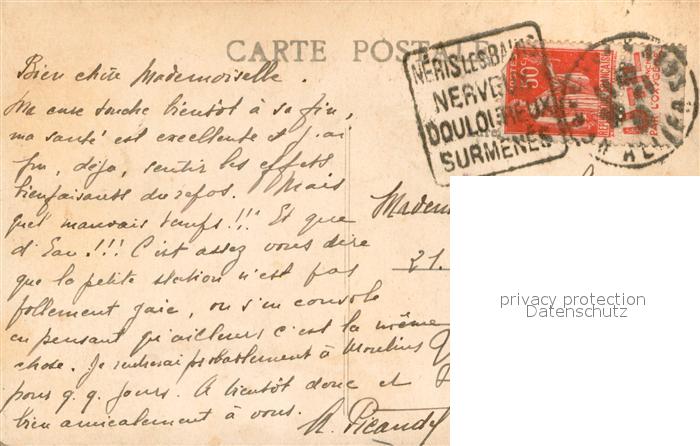 CARTE POSTALE
NÉRIS LES BAINS
NERVEUX
DOULOUREUX
SURMENÉS
POSTES
50c
ALLIER
Bien chère Mademoiselle.
Ma cure touche bientôt à sa fin,
ma santé est excellente et j'ai
pu, déjà, sentir les effets
bienfaisants du repos. Mais
quel mauvais temps!!! Et que
d'Eau!!! C'est assez vous dire
que la petite station n'est pas
follement gaie, on s'en console
en pensant qu'ailleurs c'est la même
chose. Je rentrerai probablement à Moulins
pour q.q. jours. A bientôt donc et
bien amicalement à vous.
Madem
21.
privacy protection
Datenschutz